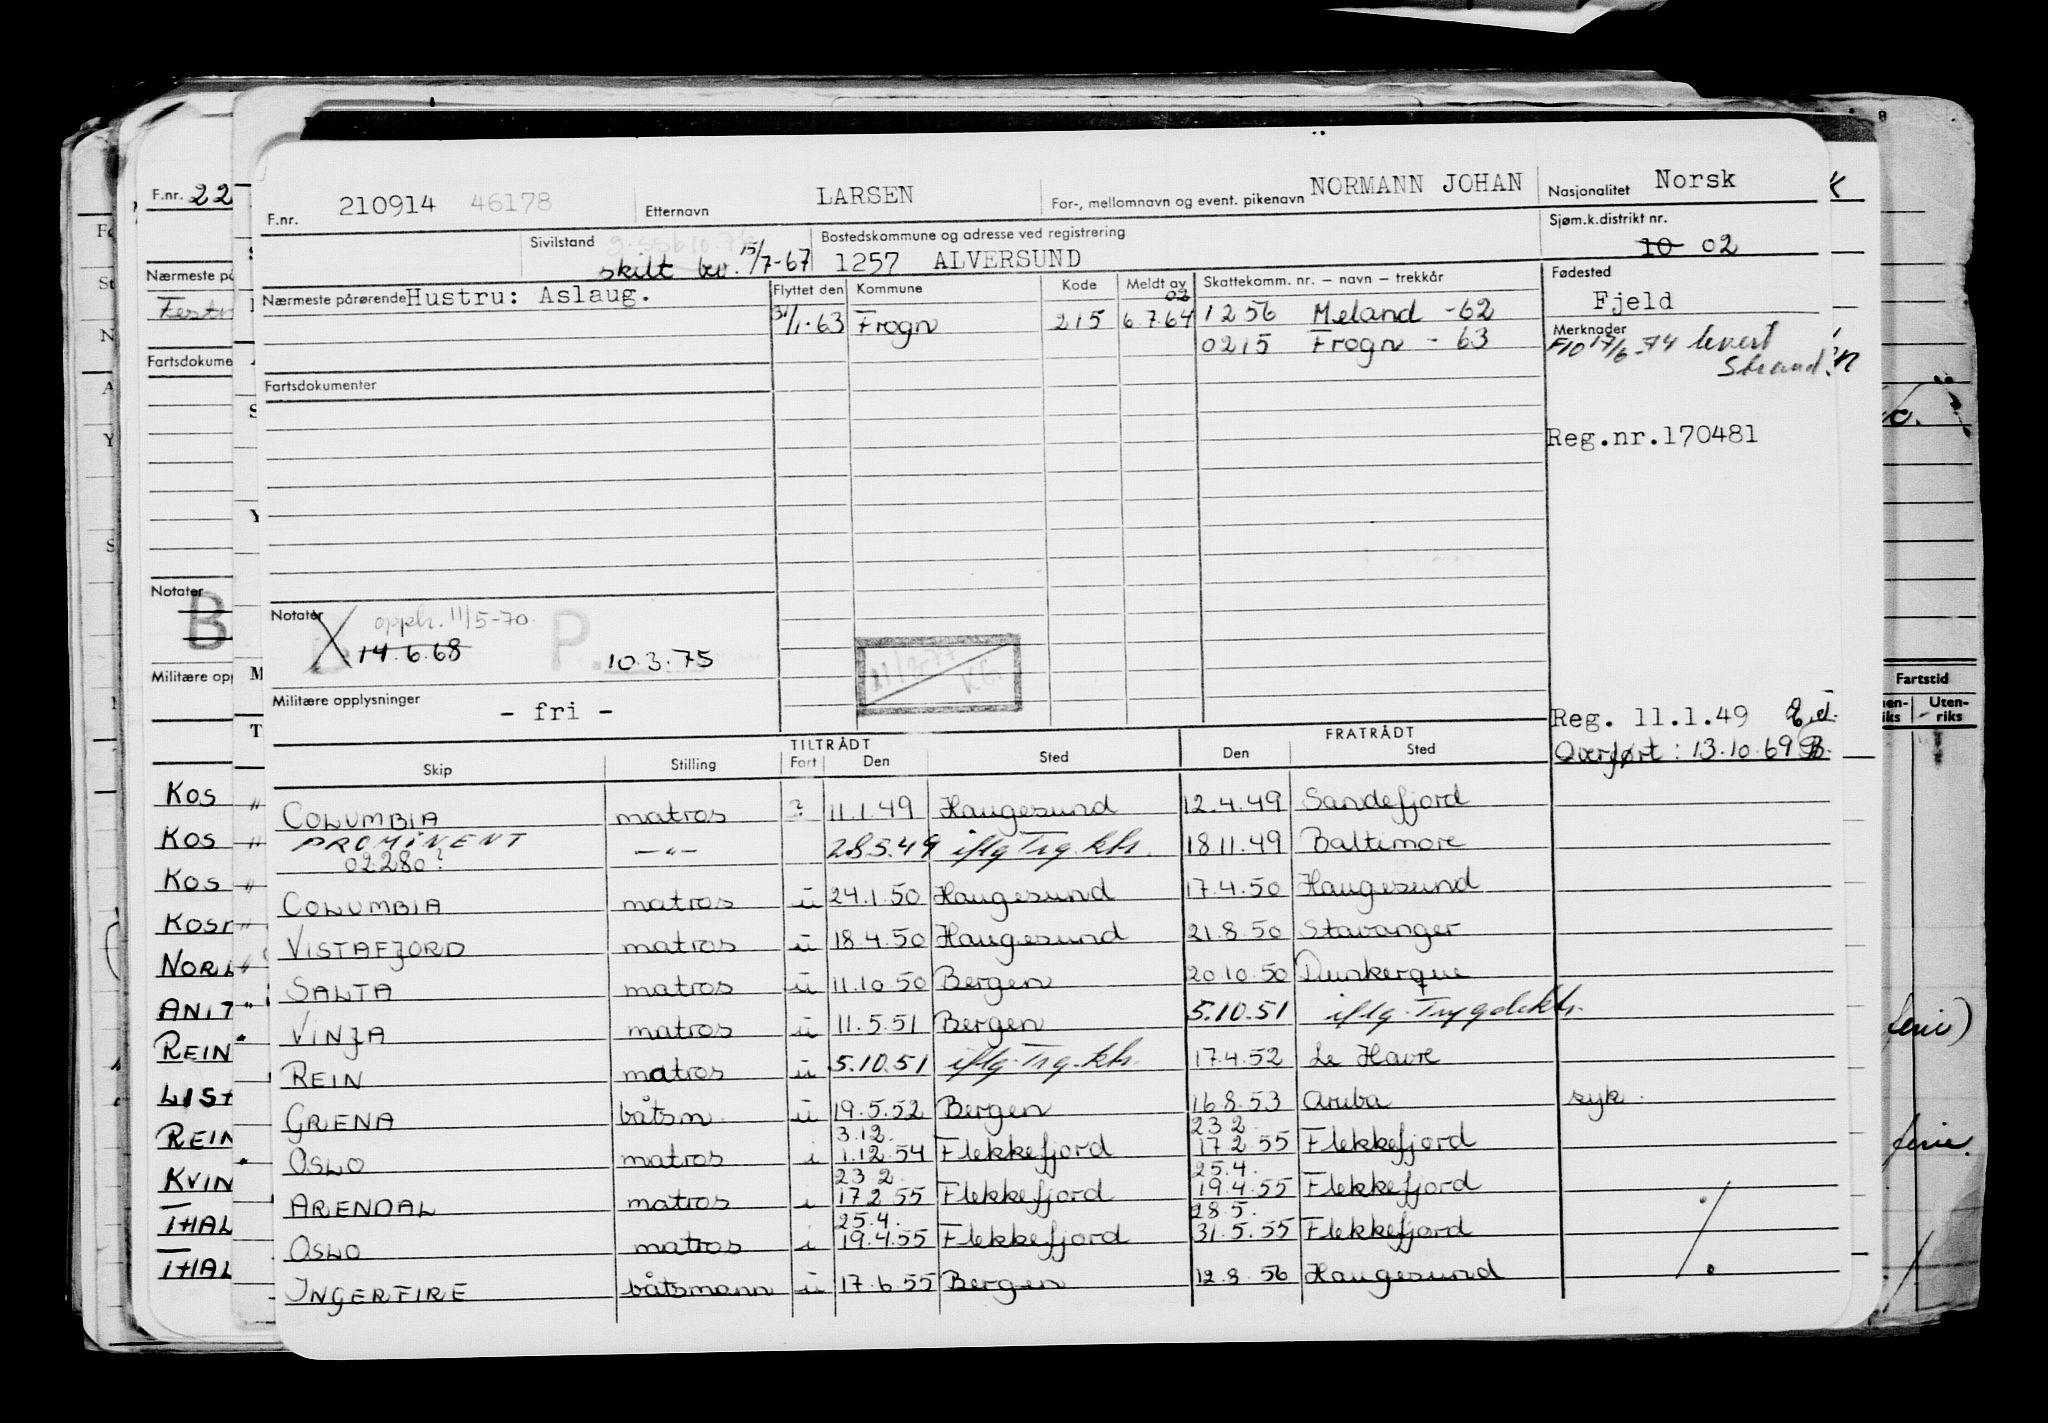 F.nr. 210914 46178 Etternavn LARSEN For-, mellomnavn og event. pikenavn NORMANN JOHAN Nasjonalitet Norsk
Sivilstand skilt bev. 15/7-67 Bostedskommune og adresse ved registrering 1257 ALVERSUND Sjøm.k.distrikt nr. 10 02
Nærmeste pårørende Hustru: Aslaug. Flyttet den Kommune Kode Meldt av Skattekomm. nr. – navn – trekkår Fødested Fjeld
31/1-63 Frogn 215 02 6.7.64 1256 Meland -62
0215 Frogn - 63
Merknader
F10 17/6-74 levert
Strand.
Fartsdokumenter
Reg.nr.170481
Notater
opph. 11/5-70.
14.6.68 P. 10.3.75
Militære opplysninger - fri -
Reg. 11.1.49
Overført: 13.10.69 B.
TILTRÅDT FRATRÅDT
Skip Stilling Fart Den Sted Den Sted
COLUMBIA matros ? 11.1.49 Haugesund 12.4.49 Sandefjord
PROMINENT —"— 28.5.49 iflg Trg.ktr. 18.11.49 Baltimore
02280?
COLUMBIA matros u 24.1.50 Haugesund 17.4.50 Haugesund
VISTAFJORD matros u 18.4.50 Haugesund 21.8.50 Stavanger
SALTA matros u 11.10.50 Bergen 20.10.50 Dunkerque
VINJA matros u 11.5.51 Bergen 5.10.51 iflg. Trygdektr.
REIN matros u 5.10.51 iflg. Trg.ktr. 17.4.52 Le Havre
GRENA båtsm. u 19.5.52 Bergen 16.8.53 Aruba syk.
3.12. 23 2
OSLO matros i 1.12.54 Flekkefjord 17 2.55 Flekkefjord
23 2. 25.4.
ARENDAL matros i 17 2.55 Flekkefjord 19.4.55 Flekkefjord
25.4. 28 5.
OSLO matros i 19.4.55 Flekkefjord 31.5.55 Flekkefjord
INGERFIRE båtsmann u 17.6.55 Bergen 12.8.56 Haugesund
F.nr. 22
Nærmeste på
Fartsdokume
Notater
B
Militære opp
KOS
KOS
KOS
KOSM
NORL
ANIT
REIN
LIST
REIN
KVIN
THAL
THAL
Fartstid
Uten-
riks
ferie)
ferie.